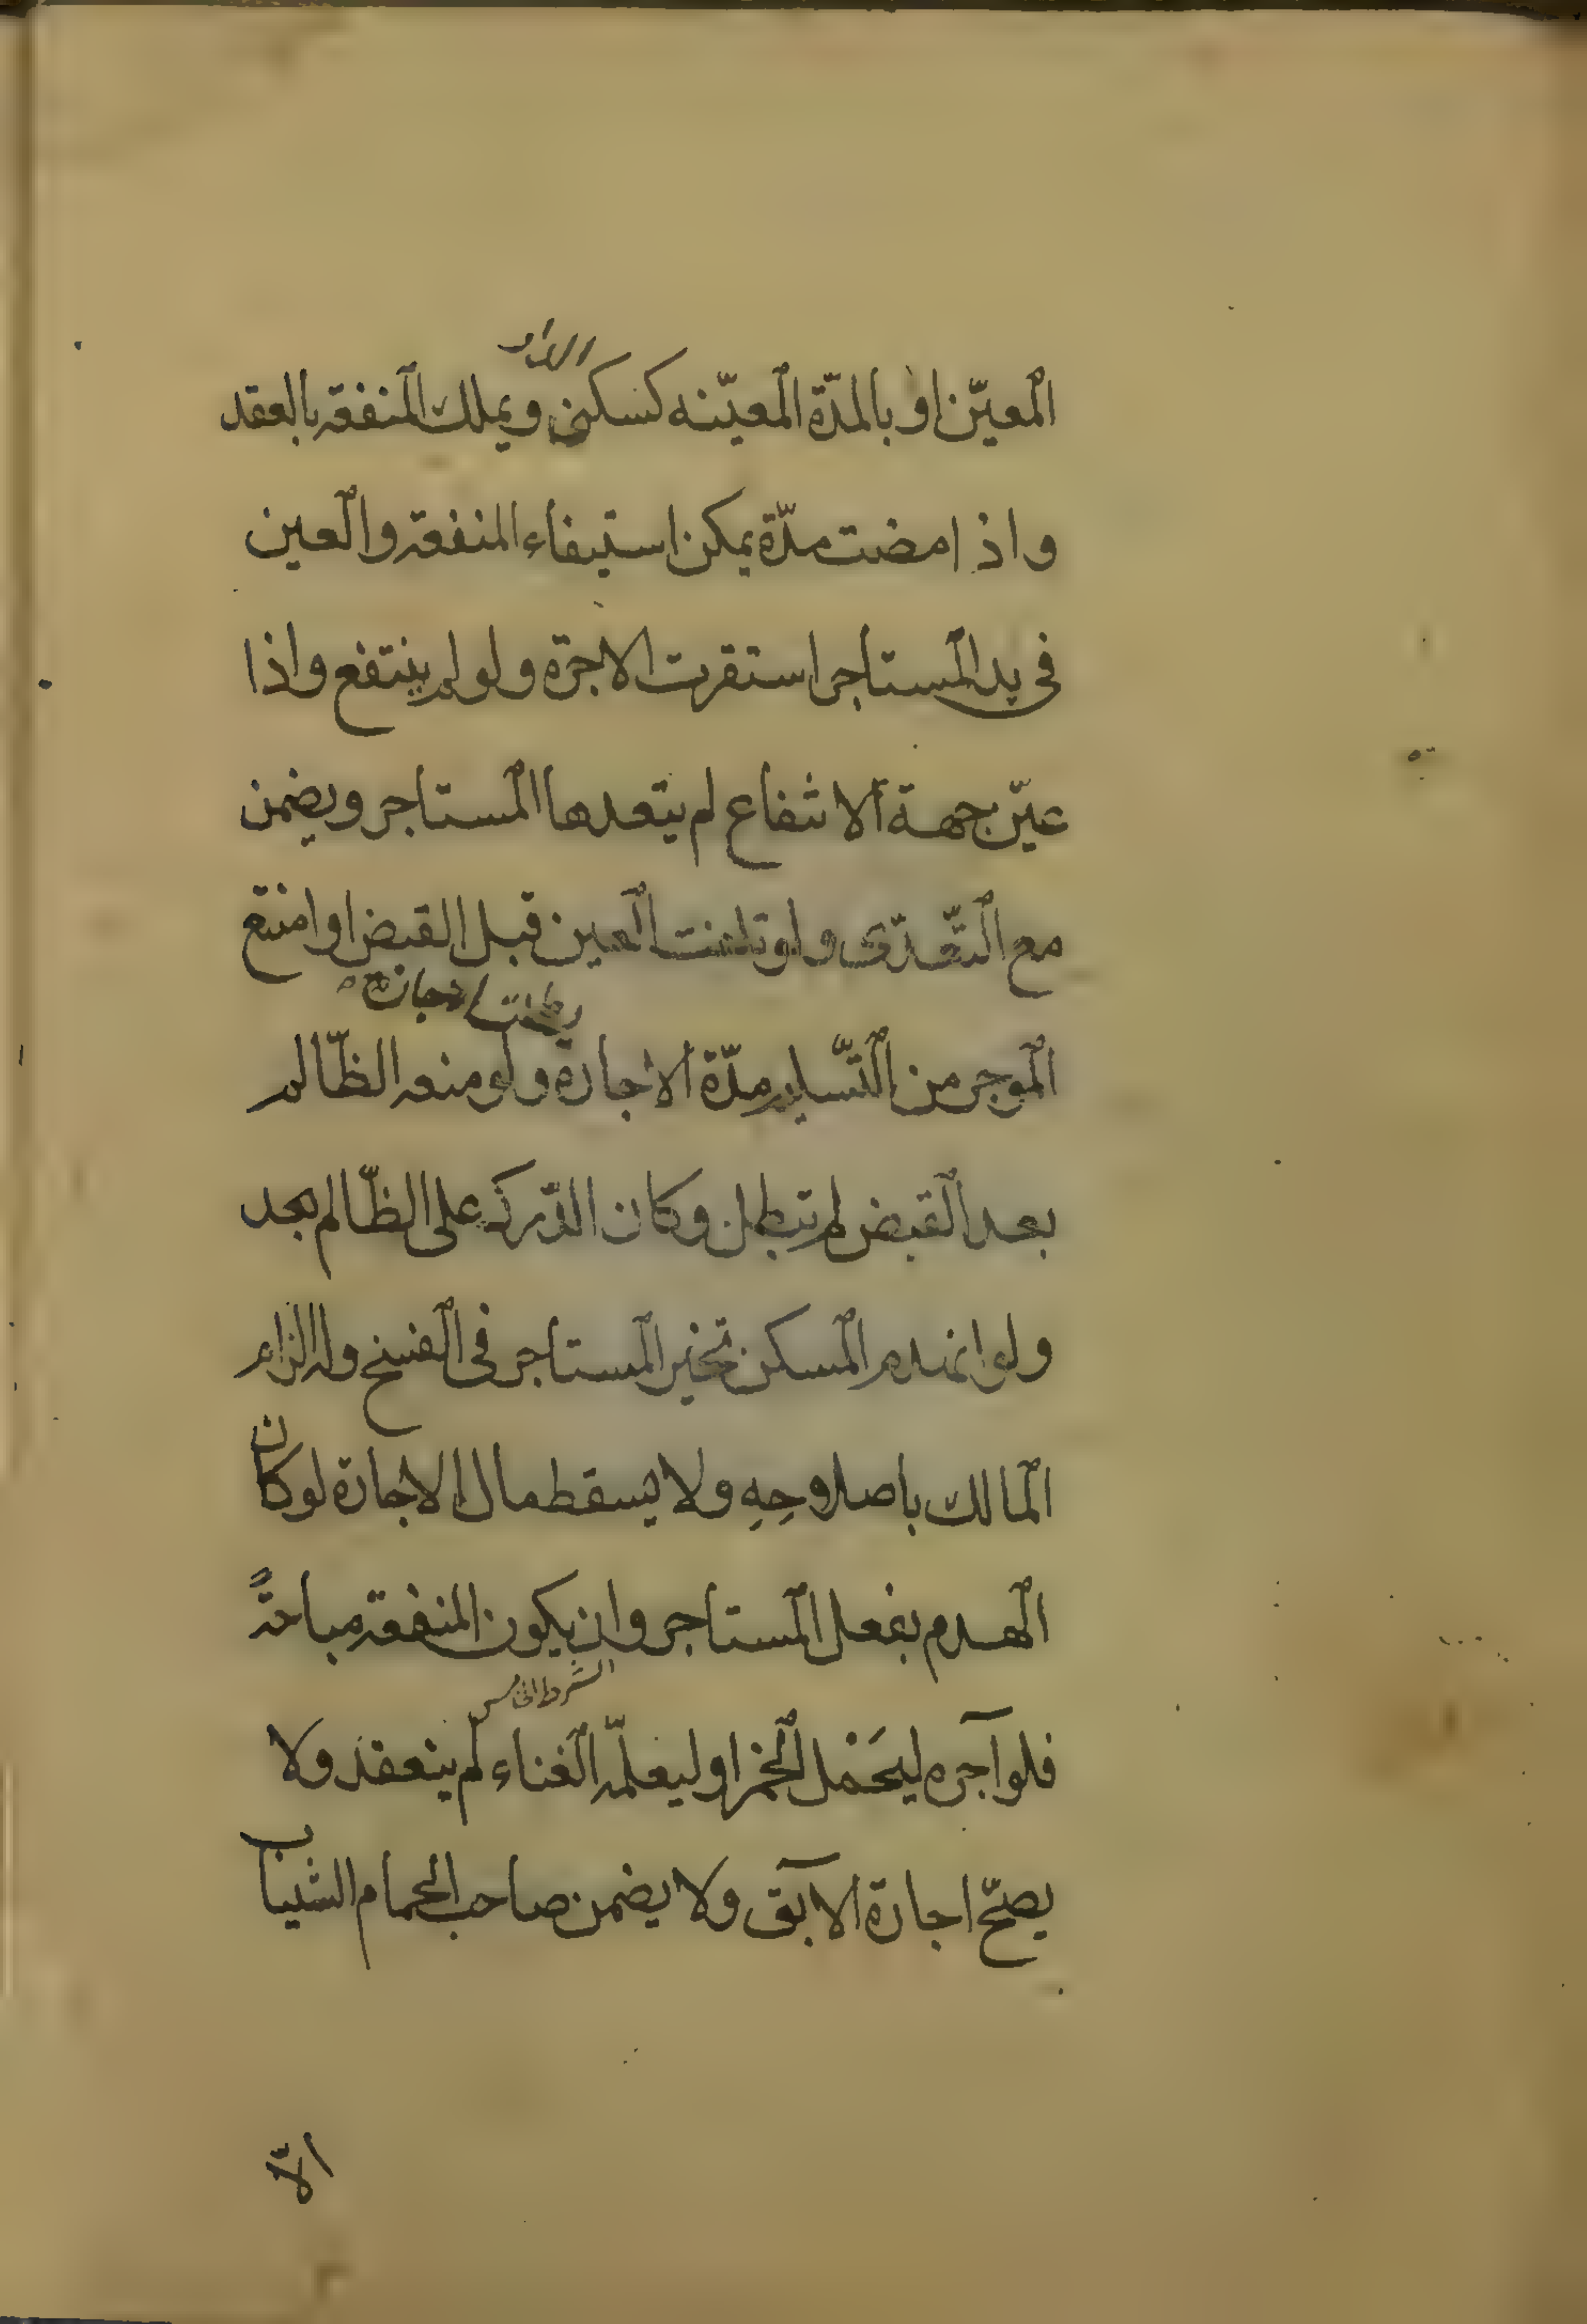 الدار
المعيّن او بالمدّة المعيّنه كسكنى ويملك المنفعه بالعقد
واذا مضت مدّة يمكن استيفاء المنفعة والعين
فى يد المستاجر استقرت الاجرة ولو لم ينتفع واذا
عيّن جهة الانتفاع لم يتعدها المستاجر ويضمن
مع التّعدّى ولو تلفت العين قبل القبض او امتنع
بطلت الاجارة
الموجر من التّسليم مدّة الاجارة ولو منعه الظّالم
بعد القبض لم تبطل وكان الدّرك على الظّالم بعد
ولو انهدم المسكن تخيّر المستاجر فى الفسخ وله الزام
المالك باصلاوحِهِ ولا يسقط مال الاجارة لو كان
الهدم بفعل المستاجر وان يكون المنفعة مباحةً
الشرط الخامس
فلو آجره ليَحْمل الخمر او ليعلّمه الغناء لم ينعقد ولا
يصحّ اجارة الآبق ولا يضمن صاحب الحمام الثياب
الّا